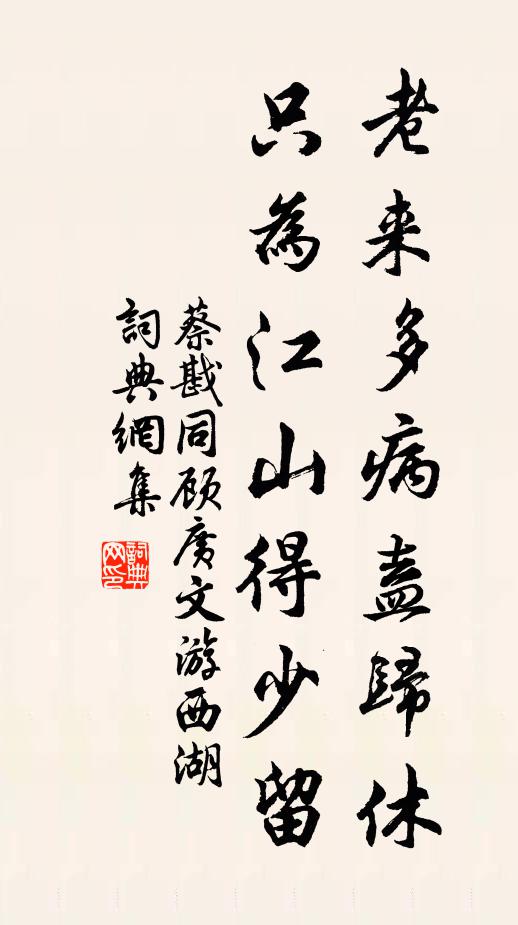 老来多病盍歸休
只為江山得少留
蔡戡同顾廣文游西湖
詞典網集
詞典網印